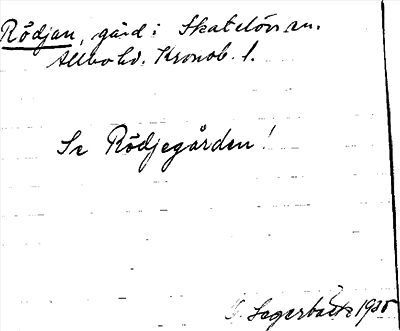 Rödjan, gård i Skatelövs sn.
Allbo hd. Kronob. l.
Se Rödjegården!
Segerbäck 1935